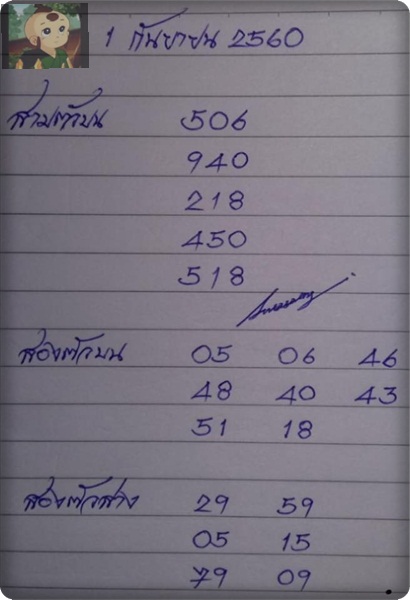 1 กันยายน 2560
สามตัวบน 506
940
218
450
518
สองตัวบน 05 06 46
48 40 43
51 18
สองตัวล่าง 29 59
05 15
79 09